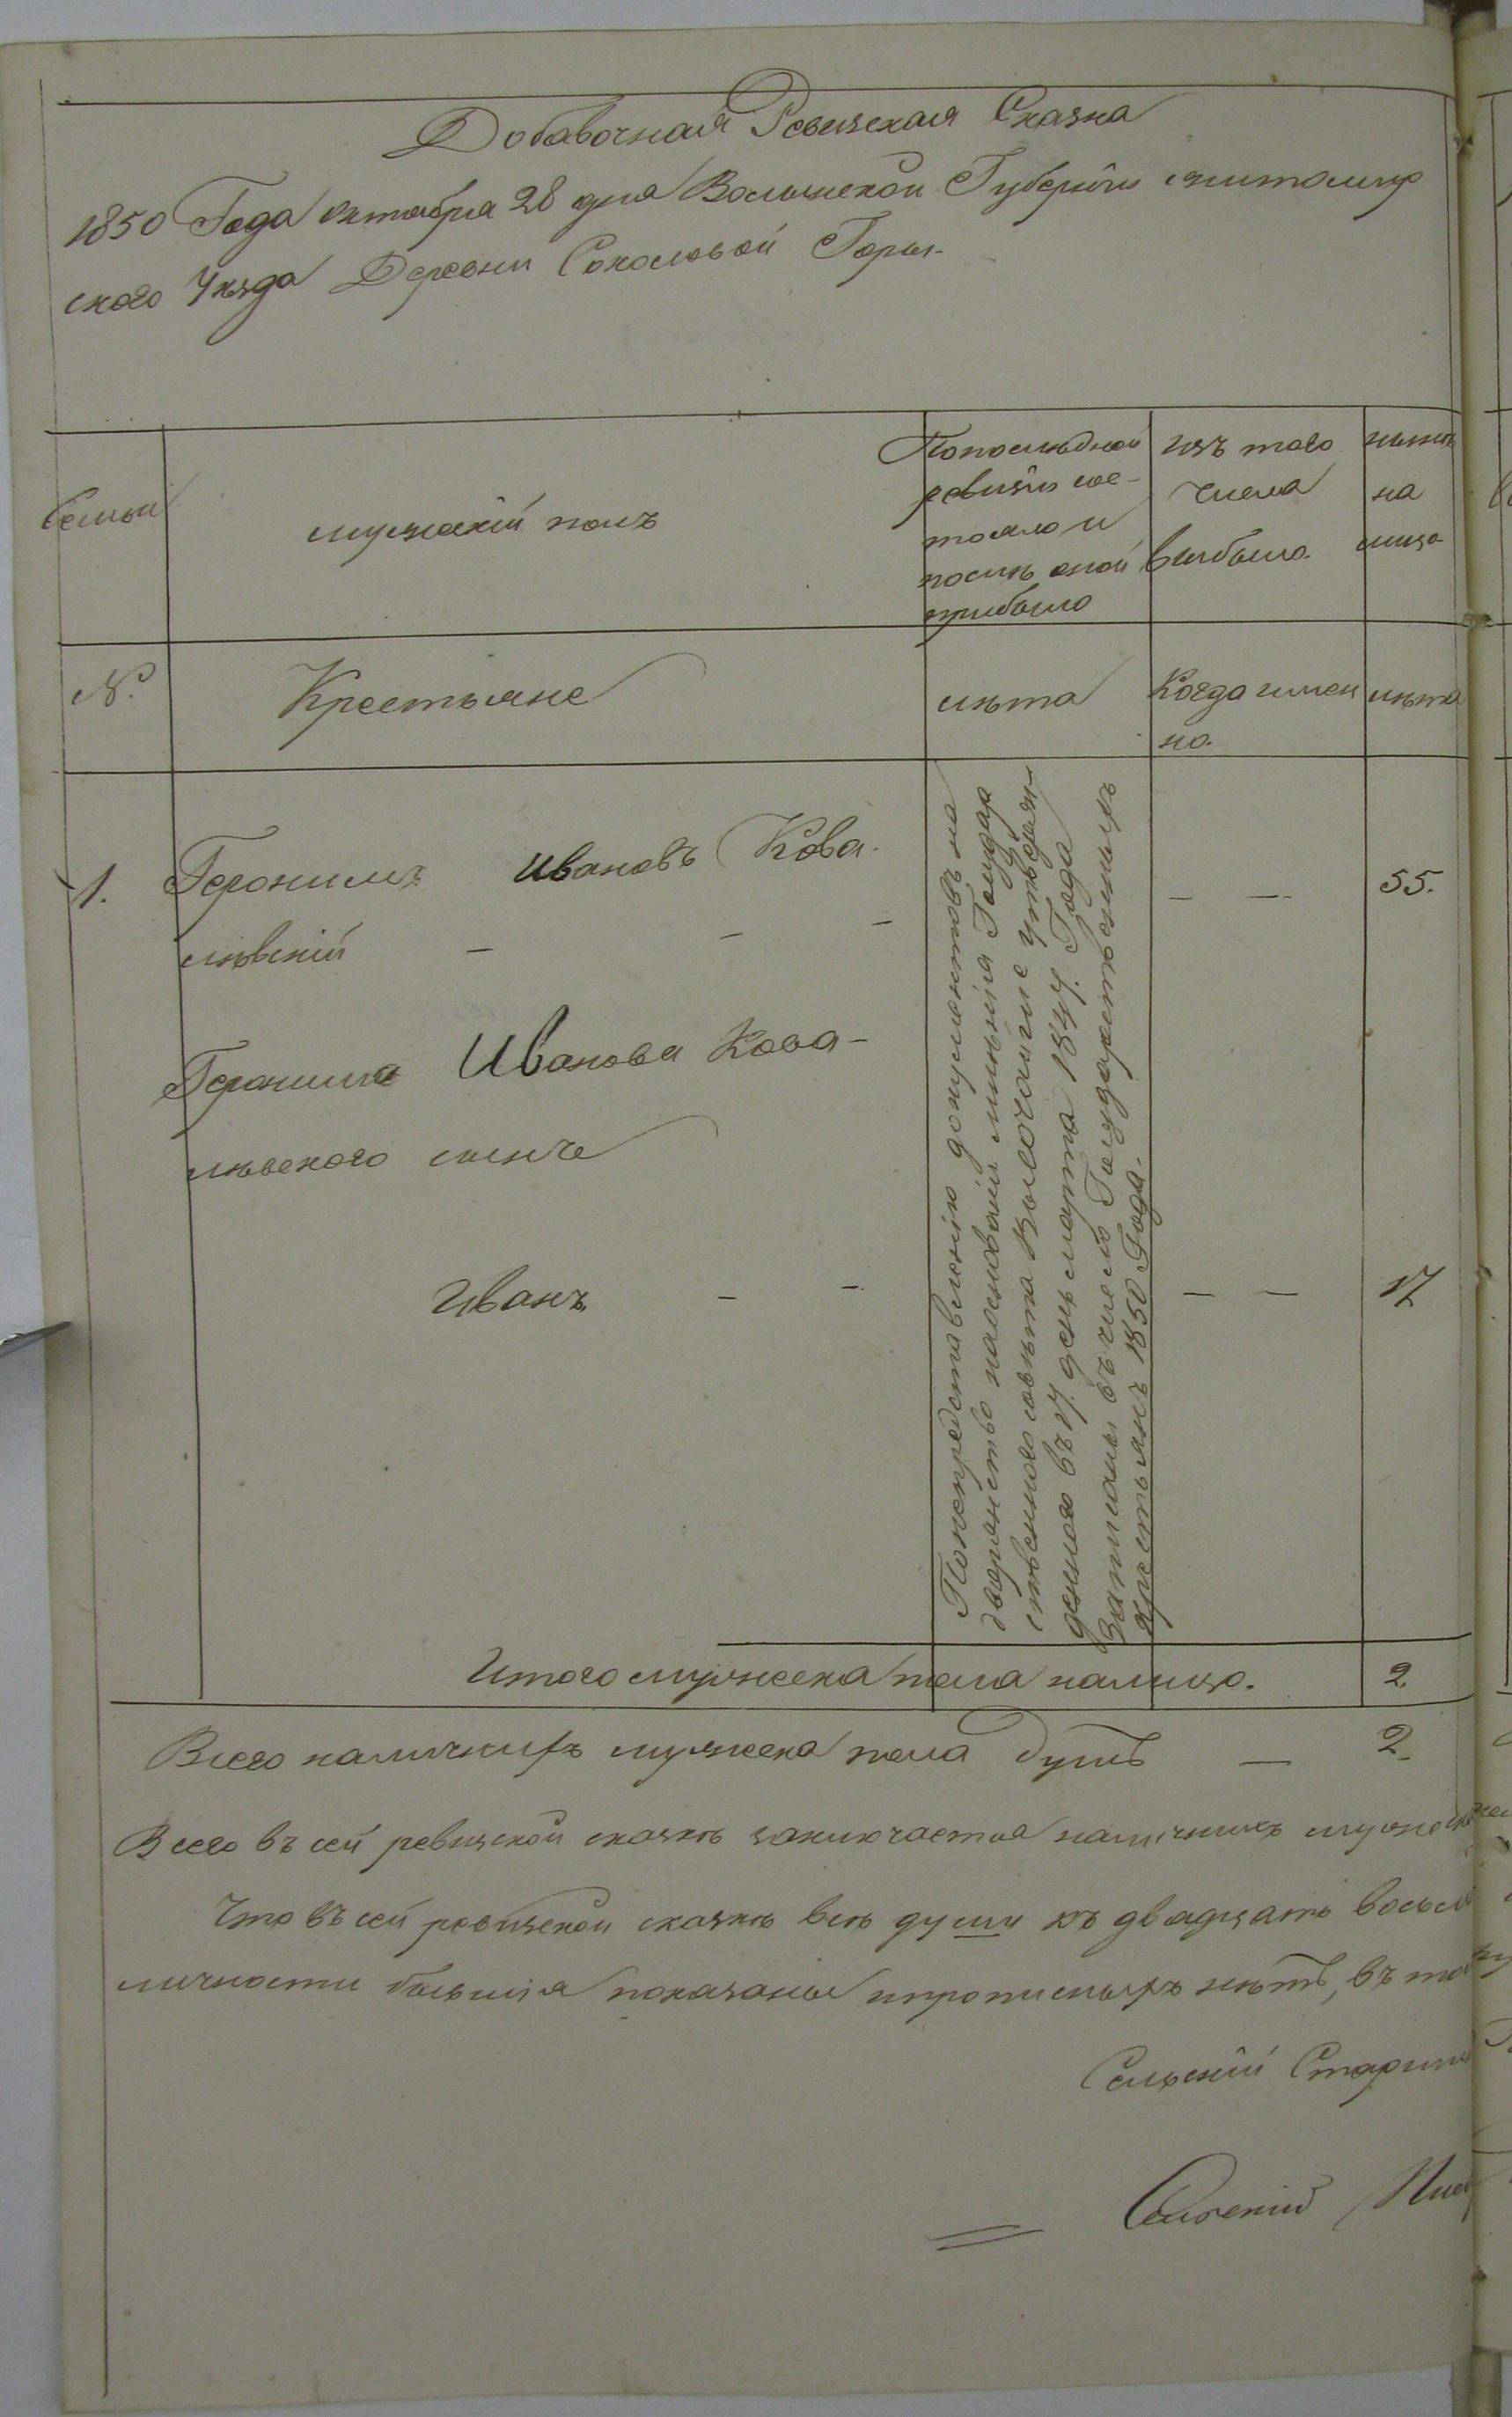 Добавочная Ревизская Сказка
1850 Года октября 28 дня Волынской Губернiи житомир
ского Уѣзда Деревни Соколовой Горы.
Семьи
мужескiй полъ
Попослѣдной
ревизiи сос-
тояло и
послѣ оной
прибыло
изъ того
числа
выбыло.
нынѣ
на
лицо
№.
Крестьяне
лѣта
Когда имен
но.
лѣта
1. Геронимъ Ивановъ Кова-
лѣвскiй - - -
55.
Геронима Иванова Кова-
лѣвского сынъ
Иванъ - -
17
Понепредставленiю документовъ на
дворянство наоснованiи мнѣнiя Государ
ственного совѣта Высочайше утверж
денного въ 17. день марта 1847. Года
записаны въ число Государственныхъ
крестьянъ 1850 Года.
Итого мужеска пола налицо. 2
Всего наличныхъ мужеска пола душъ — 2
Всего въ сей ревизской сказкѣ заключается наличныхъ мужеска
Что въ сей ревизской сказкѣ всѣ души къ двадцать восьм
личности бывшiя показаны ипрописныхъ нѣтъ, въ том
Сельскiй Старшин
Сельскiй Пис